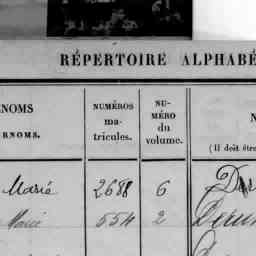 RÉPERTOIRE ALPHABÉ
ÉNOMS
RNOMS.
NUMÉROS
ma-
tricules.
NU-
MÉRO
du
volume.
N
(Il doit être
Marié 2688 6
Marié 554 2